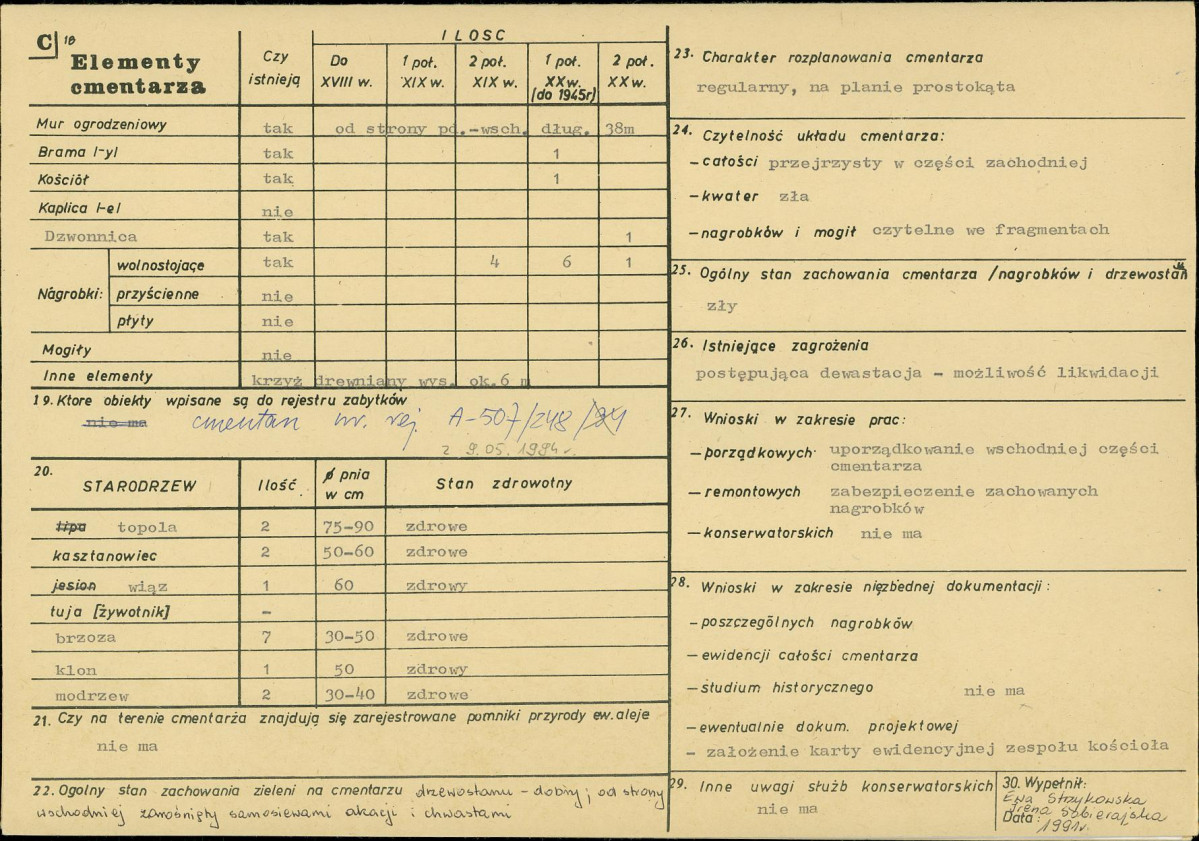 C 18
Elementy
cmentarza
Czy
istnieją
ILOSC
Do
XVIII w.
1 poł.
XIX w.
2 poł.
XIX w.
1 poł.
XX w.
(do 1945r)
2 poł.
XX w.
Mur ogrodzeniowy tak od strony pd.-wsch. dług. 38m
Brama l-yl tak 1
Kościół tak 1
Kaplica l-el nie
Dzwonnica tak 1
Nagrobki:
wolnostojące tak 4 6 1
przyścienne nie
płyty nie
Mogiły nie
Inne elementy krzyż drewniany wys. ok.6 m
19. Ktore obiekty wpisane są do rejestru zabytków
nie ma cmentarz nr. rej. A-507/248/94
z 9.05.1994r.
20.
STARODRZEW Ilość ø pnia
w cm Stan zdrowotny
lipa topola 2 75-90 zdrowe
kasztanowiec 2 50-60 zdrowe
jesion wiąz 1 60 zdrowy
tuja [żywotnik] -
brzoza 7 30-50 zdrowe
klon 1 50 zdrowy
modrzew 2 30-40 zdrowe
21. Czy na terenie cmentarza znajdują się zarejestrowane pomniki przyrody ew. aleje
nie ma
22. Ogolny stan zachowania zieleni na cmentarzu drzewostanu - dobry; od strony
wschodniej zarośnięty samosiewami akacji i chwastami
23. Charakter rozplanowania cmentarza
regularny, na planie prostokąta
24. Czytelność układu cmentarza:
-całości przejrzysty w części zachodniej
-kwater zła
-nagrobków i mogił czytelne we fragmentach
25. Ogólny stan zachowania cmentarza /nagrobków i drzewostan
zły
26. Istniejące zagrożenia
postępująca dewastacja - możliwość likwidacji
27. Wnioski w zakresie prac:
-porządkowych uporządkowanie wschodniej części
cmentarza
-remontowych zabezpieczenie zachowanych
nagrobków
-konserwatorskich nie ma
28. Wnioski w zakresie nięzbędnej dokumentacji:
-poszczególnych nagrobków
-ewidencji całości cmentarza
-studium historycznego nie ma
-ewentualnie dokum. projektowej
- założenie karty ewidencyjnej zespołu kościoła
29. Inne uwagi służb konserwatorskich
nie ma
30. Wypełnił:
Ewa Strzykowska
Irena Sobierajska
Data: 1991r.